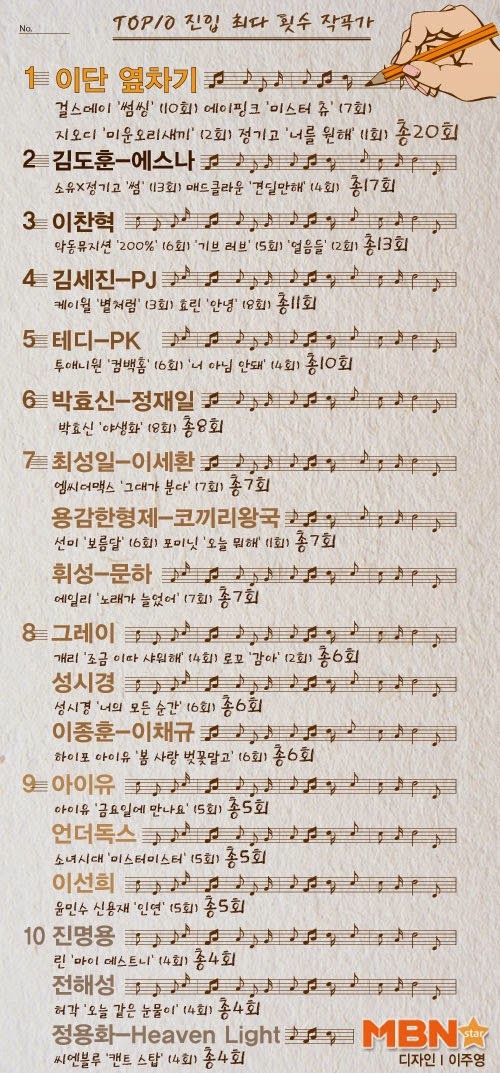 No.
TOP10 진입 최다 횟수 작곡가
1 이단 옆차기
걸스데이 '썸씽' (10회) 에이핑크 '미스터 츄' (7회)
지오디 '미운오리새끼' (2회) 정기고 '너를 원해' (1회) 총20회
2 김도훈-에스나
소유X정기고 '썸' (13회) 매드클라운 '견딜만해' (4회) 총17회
3 이찬혁
악동뮤지션 '200%' (6회) '기브 러브' (5회) '얼음들' (2회) 총13회
4 김세진-PJ
케이윌 '별처럼' (3회) 효린 '안녕' (8회) 총11회
5 테디-PK
투애니원 '컴백홈' (6회) '너 아님 안돼' (4회) 총10회
6 박효신-정재일
박효신 '야생화' (8회) 총8회
7 최성일-이세환
엠씨더맥스 '그대가 분다' (7회) 총7회
용감한형제-코끼리왕국
선미 '보름달' (6회) 포미닛 '오늘 뭐해' (1회) 총7회
휘성-문하
에일리 '노래가 늘었어' (7회) 총7회
8 그레이
개리 '조금 이따 샤워해' (4회) 로꼬 '감아' (2회) 총6회
성시경
성시경 '너의 모든 순간' (6회) 총6회
이종훈-이채규
하이포 아이유 '봄 사랑 벚꽃말고' (6회) 총6회
9 아이유
아이유 '금요일에 만나요' (5회) 총5회
언더독스
소녀시대 '미스터미스터' (5회) 총5회
이선희
윤민수 신용재 '인연' (5회) 총5회
10 진명용
린 '마이 데스트니' (4회) 총4회
전해성
허각 '오늘 같은 눈물이' (4회) 총4회
정용화-Heaven Light
씨엔블루 '캔트 스탑' (4회) 총4회
MBN star
디자인 | 이주영